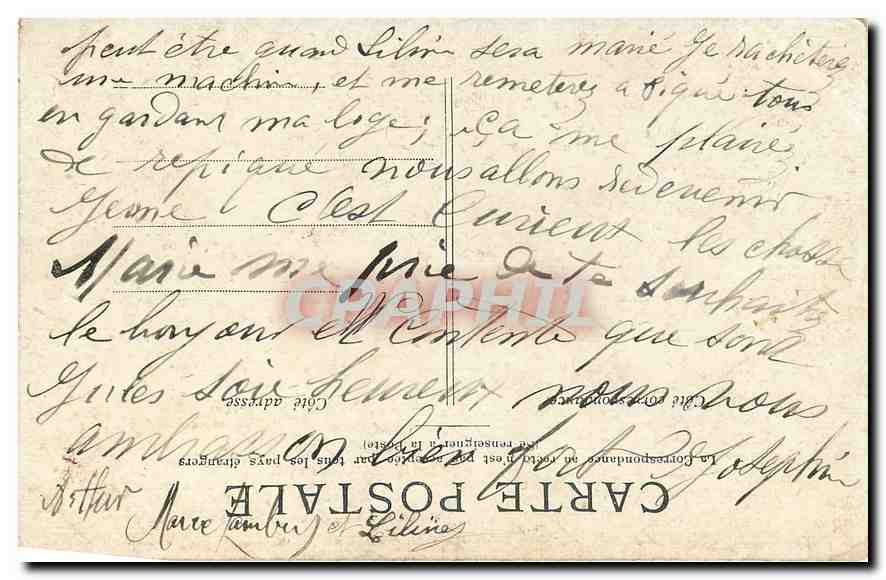 peut être quand Liline sera marié Je rachèterez
une machine, et me remeterez a piqué tous
en gardant ma loge; Ça me plairez
de repiqué nous allons redevenir
Jeone C'est Curieux les chosse
Marie me prie de te souhaite
le bonjour Elle Contente que son
Jules soie heureux nous vous
ambrasson bien fort Josephine
Arthur
Marie et Lilines
CARTE POSTALE
La Correspondance au recto n'est pas acceptée par tous les pays étrangers
(Se renseigner à la Poste)
Côté correspondance
Côté adresse
CARPHIL